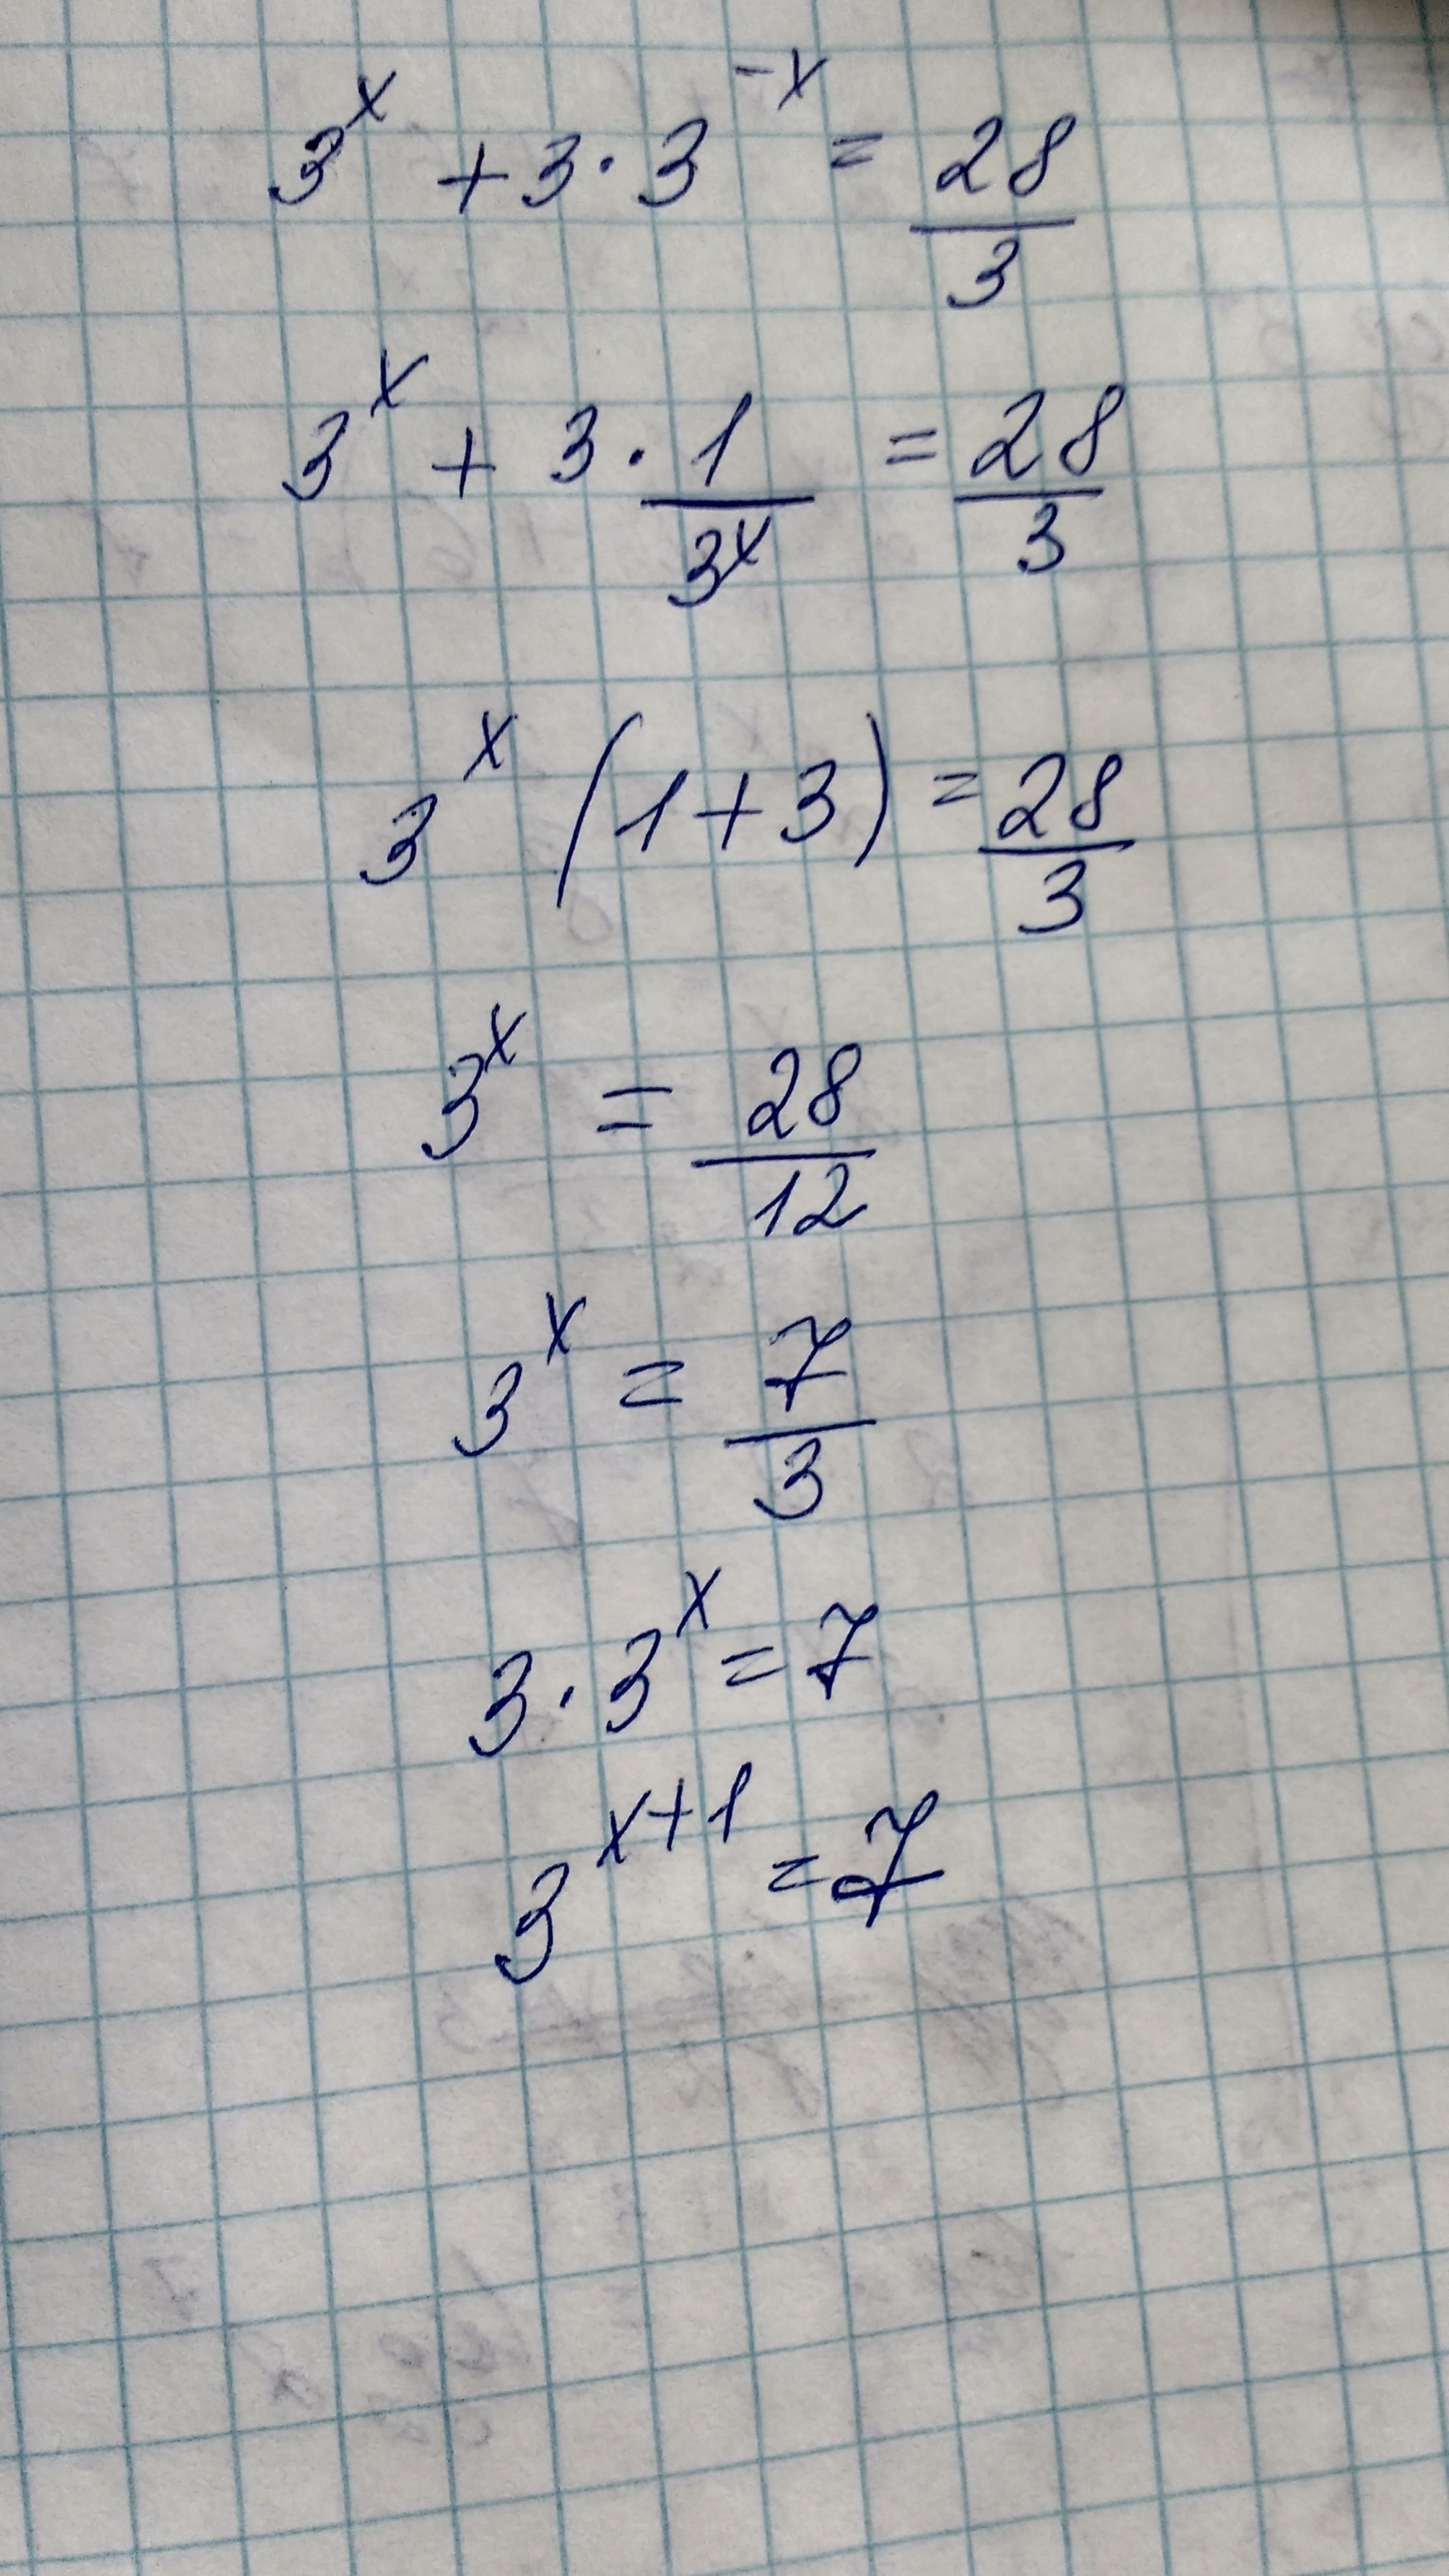 3^x + 3 · 3^{-x} = 28/3
3^x + 3 · 1/3^x = 28/3
3^x (1+3) = 28/3
3^x = 28/12
3^x = 7/3
3 · 3^x = 7
3^{x+1} = 7